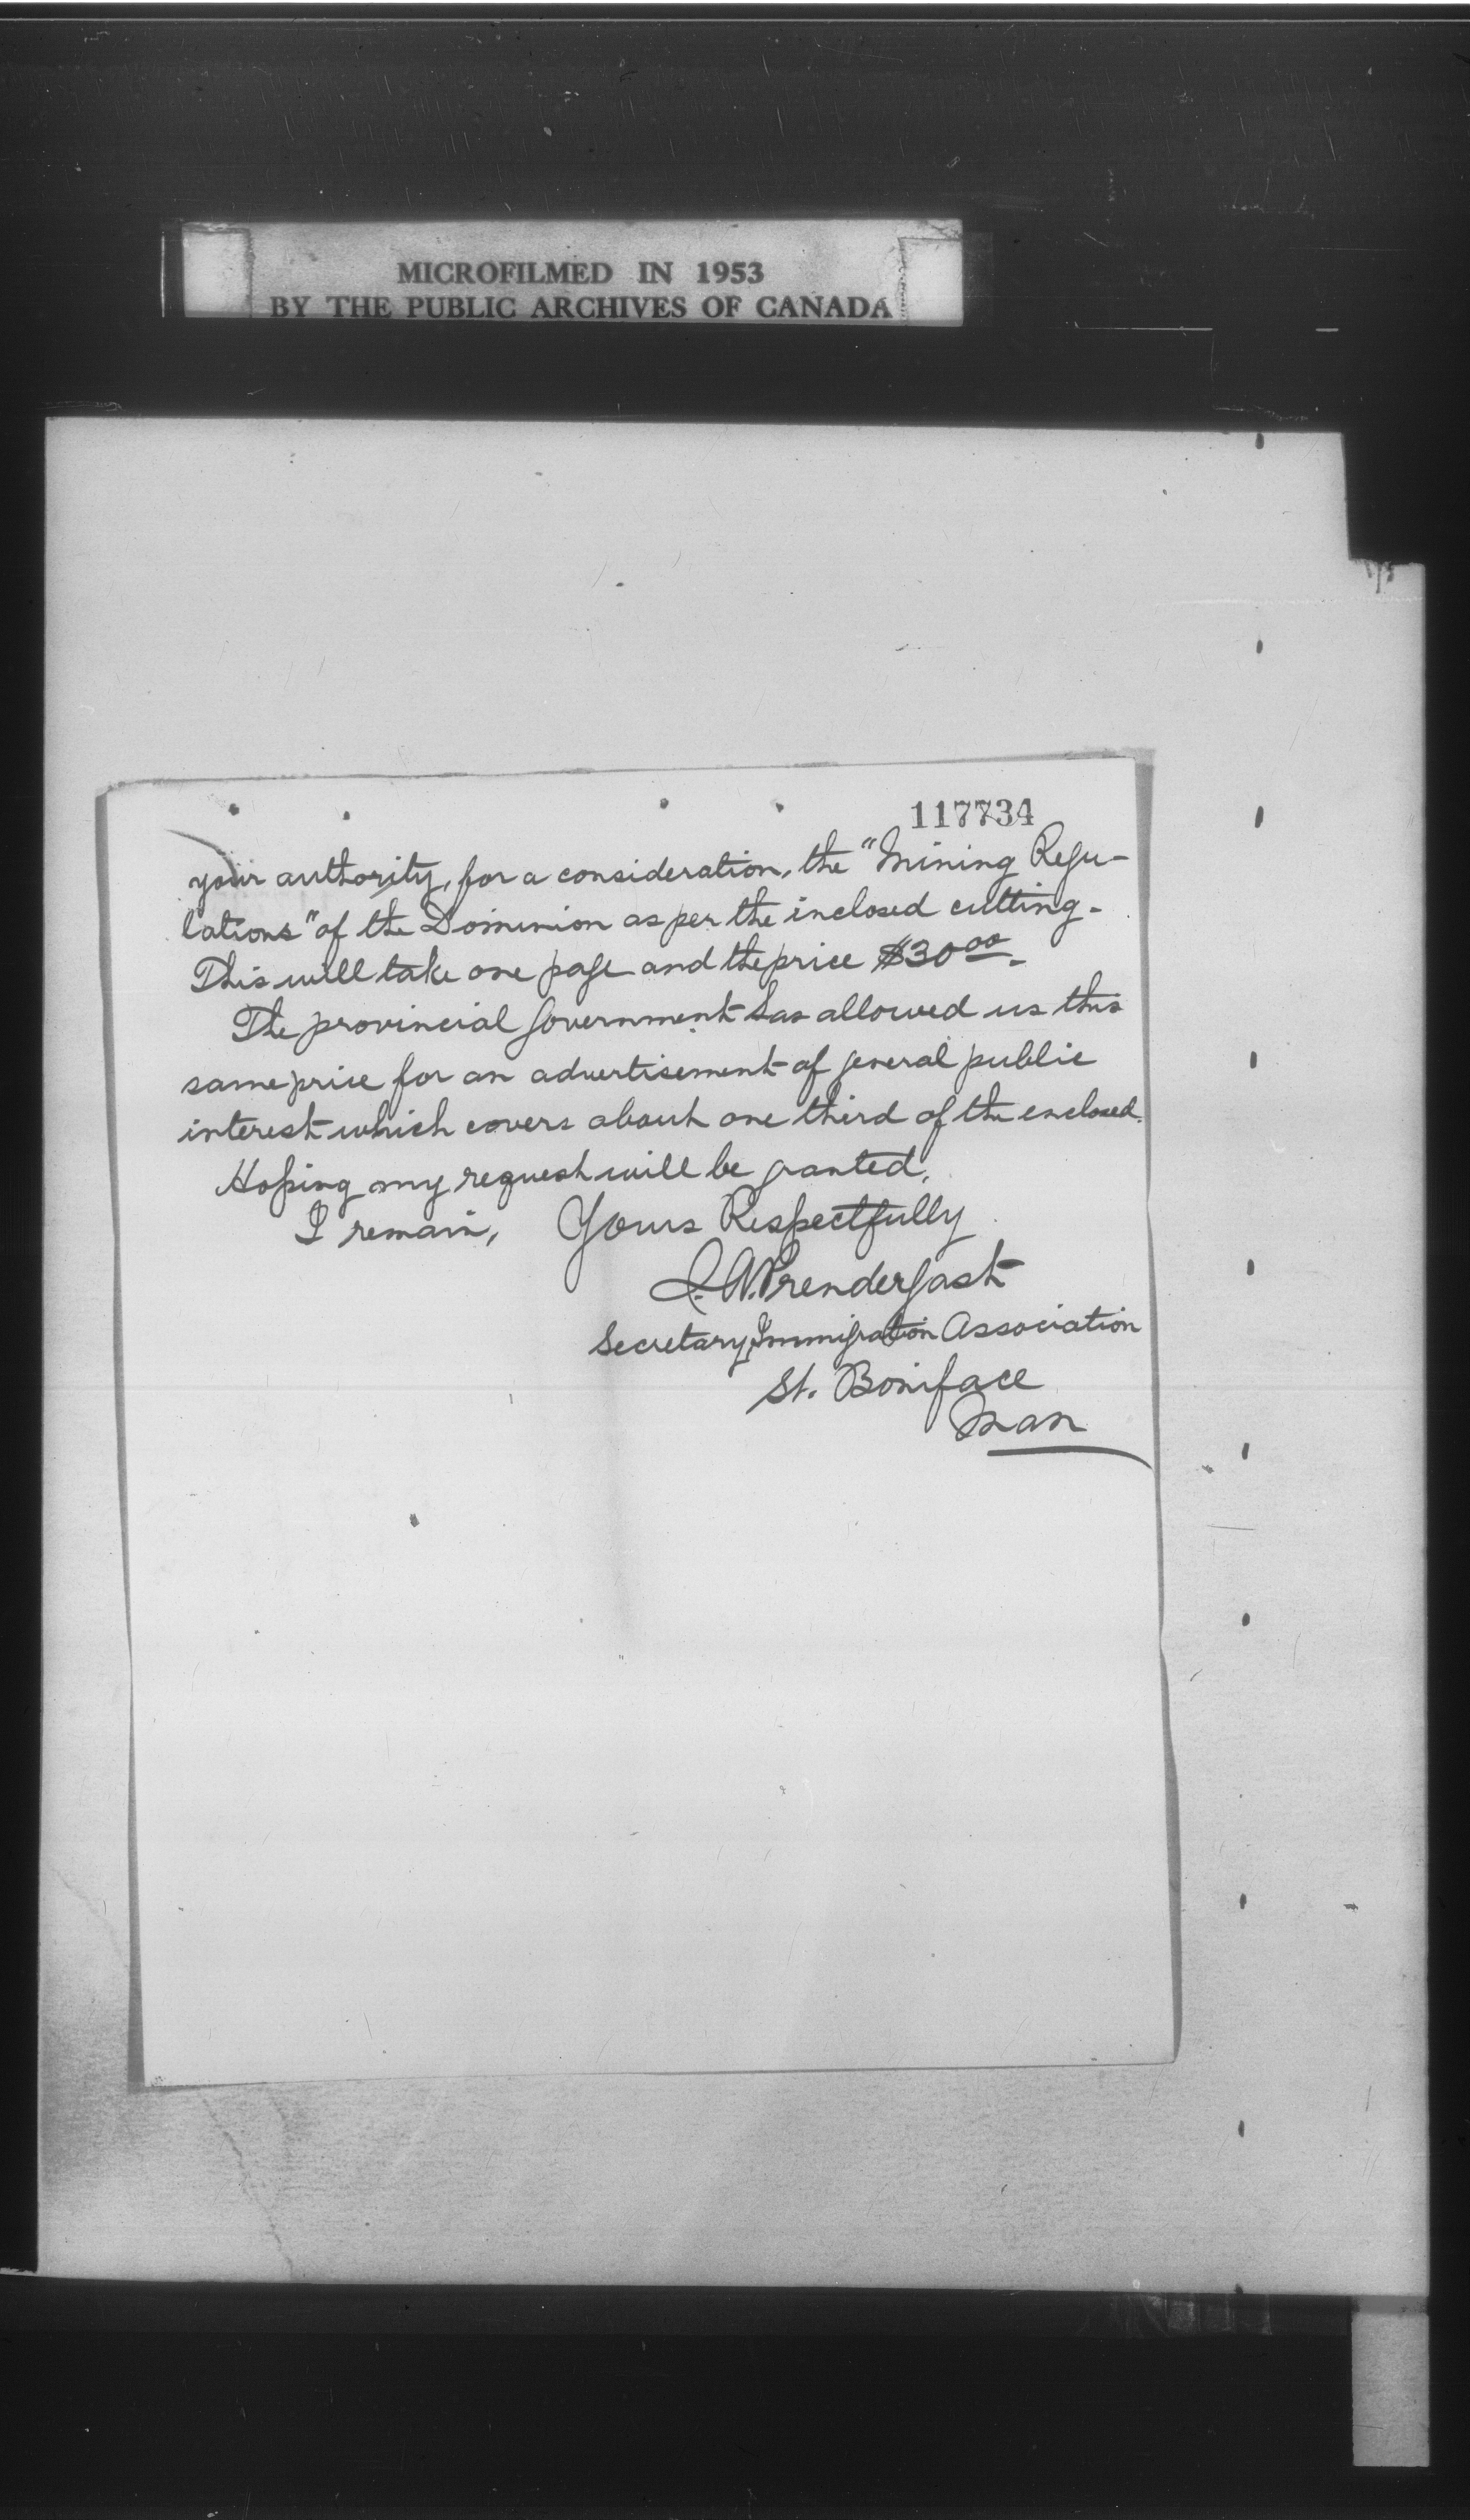 MICROFILMED IN 1953
BY THE PUBLIC ARCHIVES OF CANADA
117734
your authority, for a consideration, the "Mining Regu-
lations" of the Dominion as per the inclosed cutting.
This will take one page and the price $30 00.
The provincial Government has allowed us this
same price for an advertisement of general public
interest which covers about one third of the enclosed.
Hoping my request will be granted,
I remain, Yours Respectfully
Prendergast
Secretary, Immigration Association
St. Boniface
Man